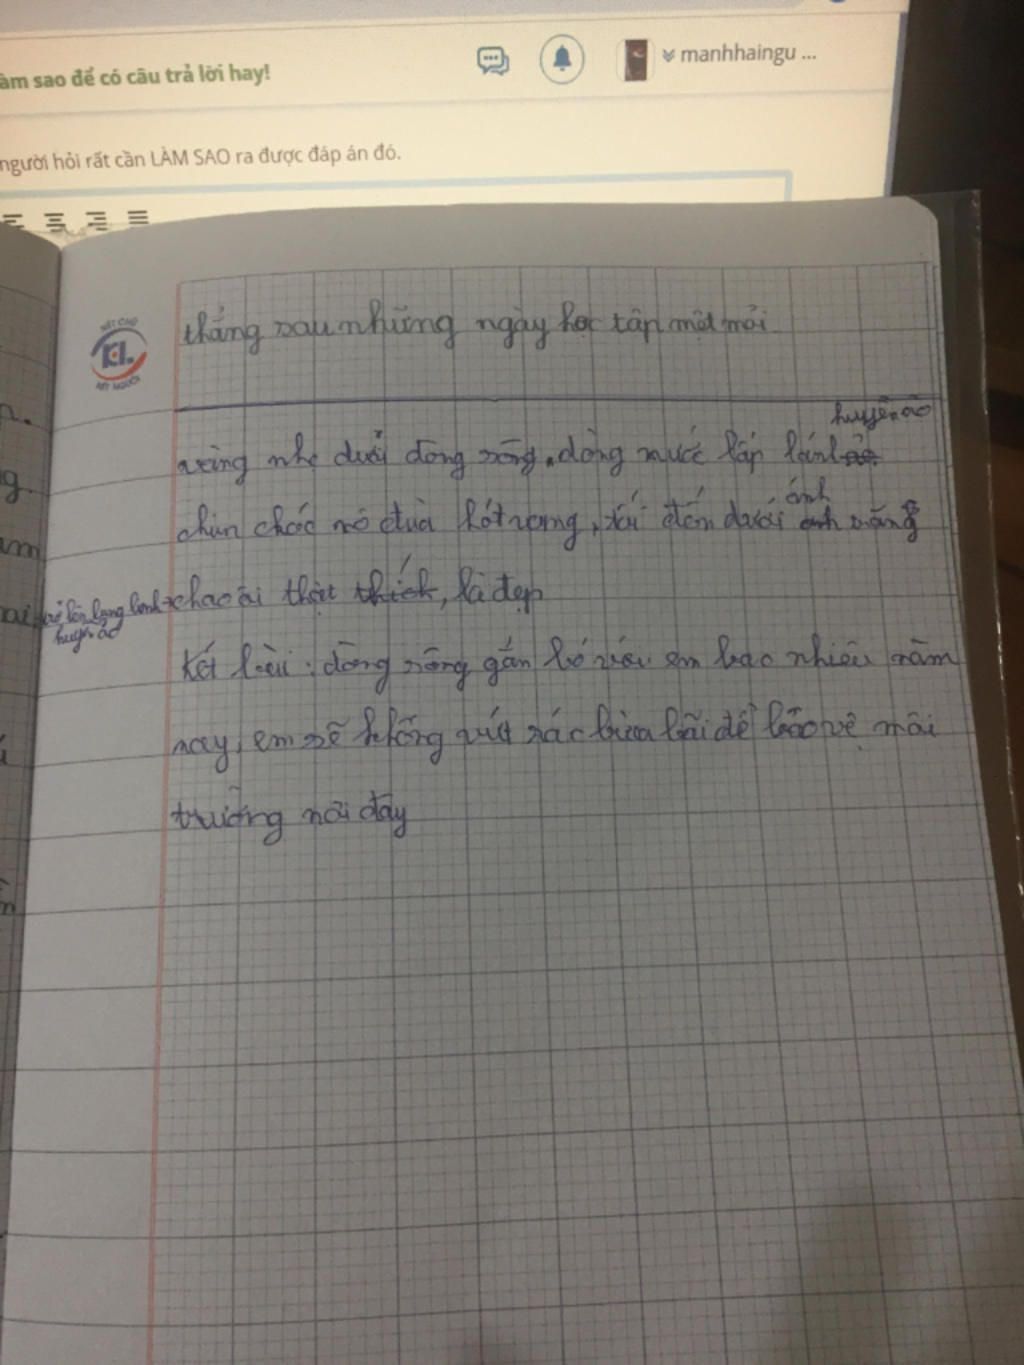 àm sao để có câu trả lời hay!
manhhaingu ...
người hỏi rất cần LÀM SAO ra được đáp án đó.
NÉT CHỮ
KL.
NẾT NGƯỜI
thẳng sau những ngày học tập mệt mỏi
huyền ảo
nhẹ dưới dòng sông, dòng nước lấp lánh
chim chóc nô đùa hót vang, tối đến dưới ánh trăng
trở lên lung linh huyền ảo
chao ôi thật thích, là đẹp
Kết bài: dòng sông gắn bó với em bao nhiêu năm
nay, em sẽ không vứt rác bừa bãi để bảo vệ môi
trường nơi đây